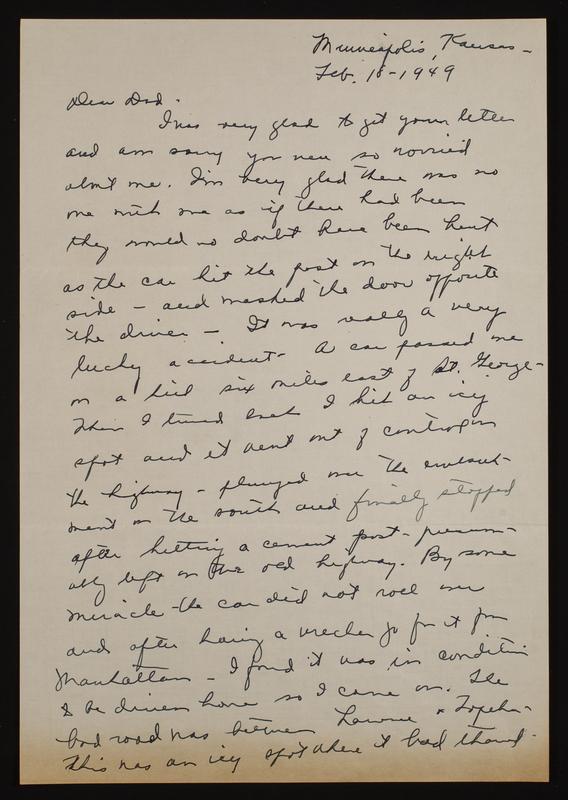 Minneapolis, Kansas -
Feb. 18 - 1949
Dear Dad.
I was very glad to get your letter
and am sorry you were so worried
about me. I'm very glad there was no
one with me as if there had been
they would no doubt have been hurt
as the car hit the post on the right
side - and mashed the door opposite
the driver - It was really a very
lucky accident - A car passed me
on a hill six miles east of St. George -
When I turned back I hit an icy
spot and it went out of control on
the highway - plunged over the embank-
ment on the south and finally stopped
after hitting a cement post - presum-
ably left on the old highway. By some
miracle the car did not roll over
and after having a wrecker go for it from
Manhattan - I found it was in condition
to be driven home so I came on. The
bad road was between Lawrence & Topeka -
this was an icy spot where it had thawed -